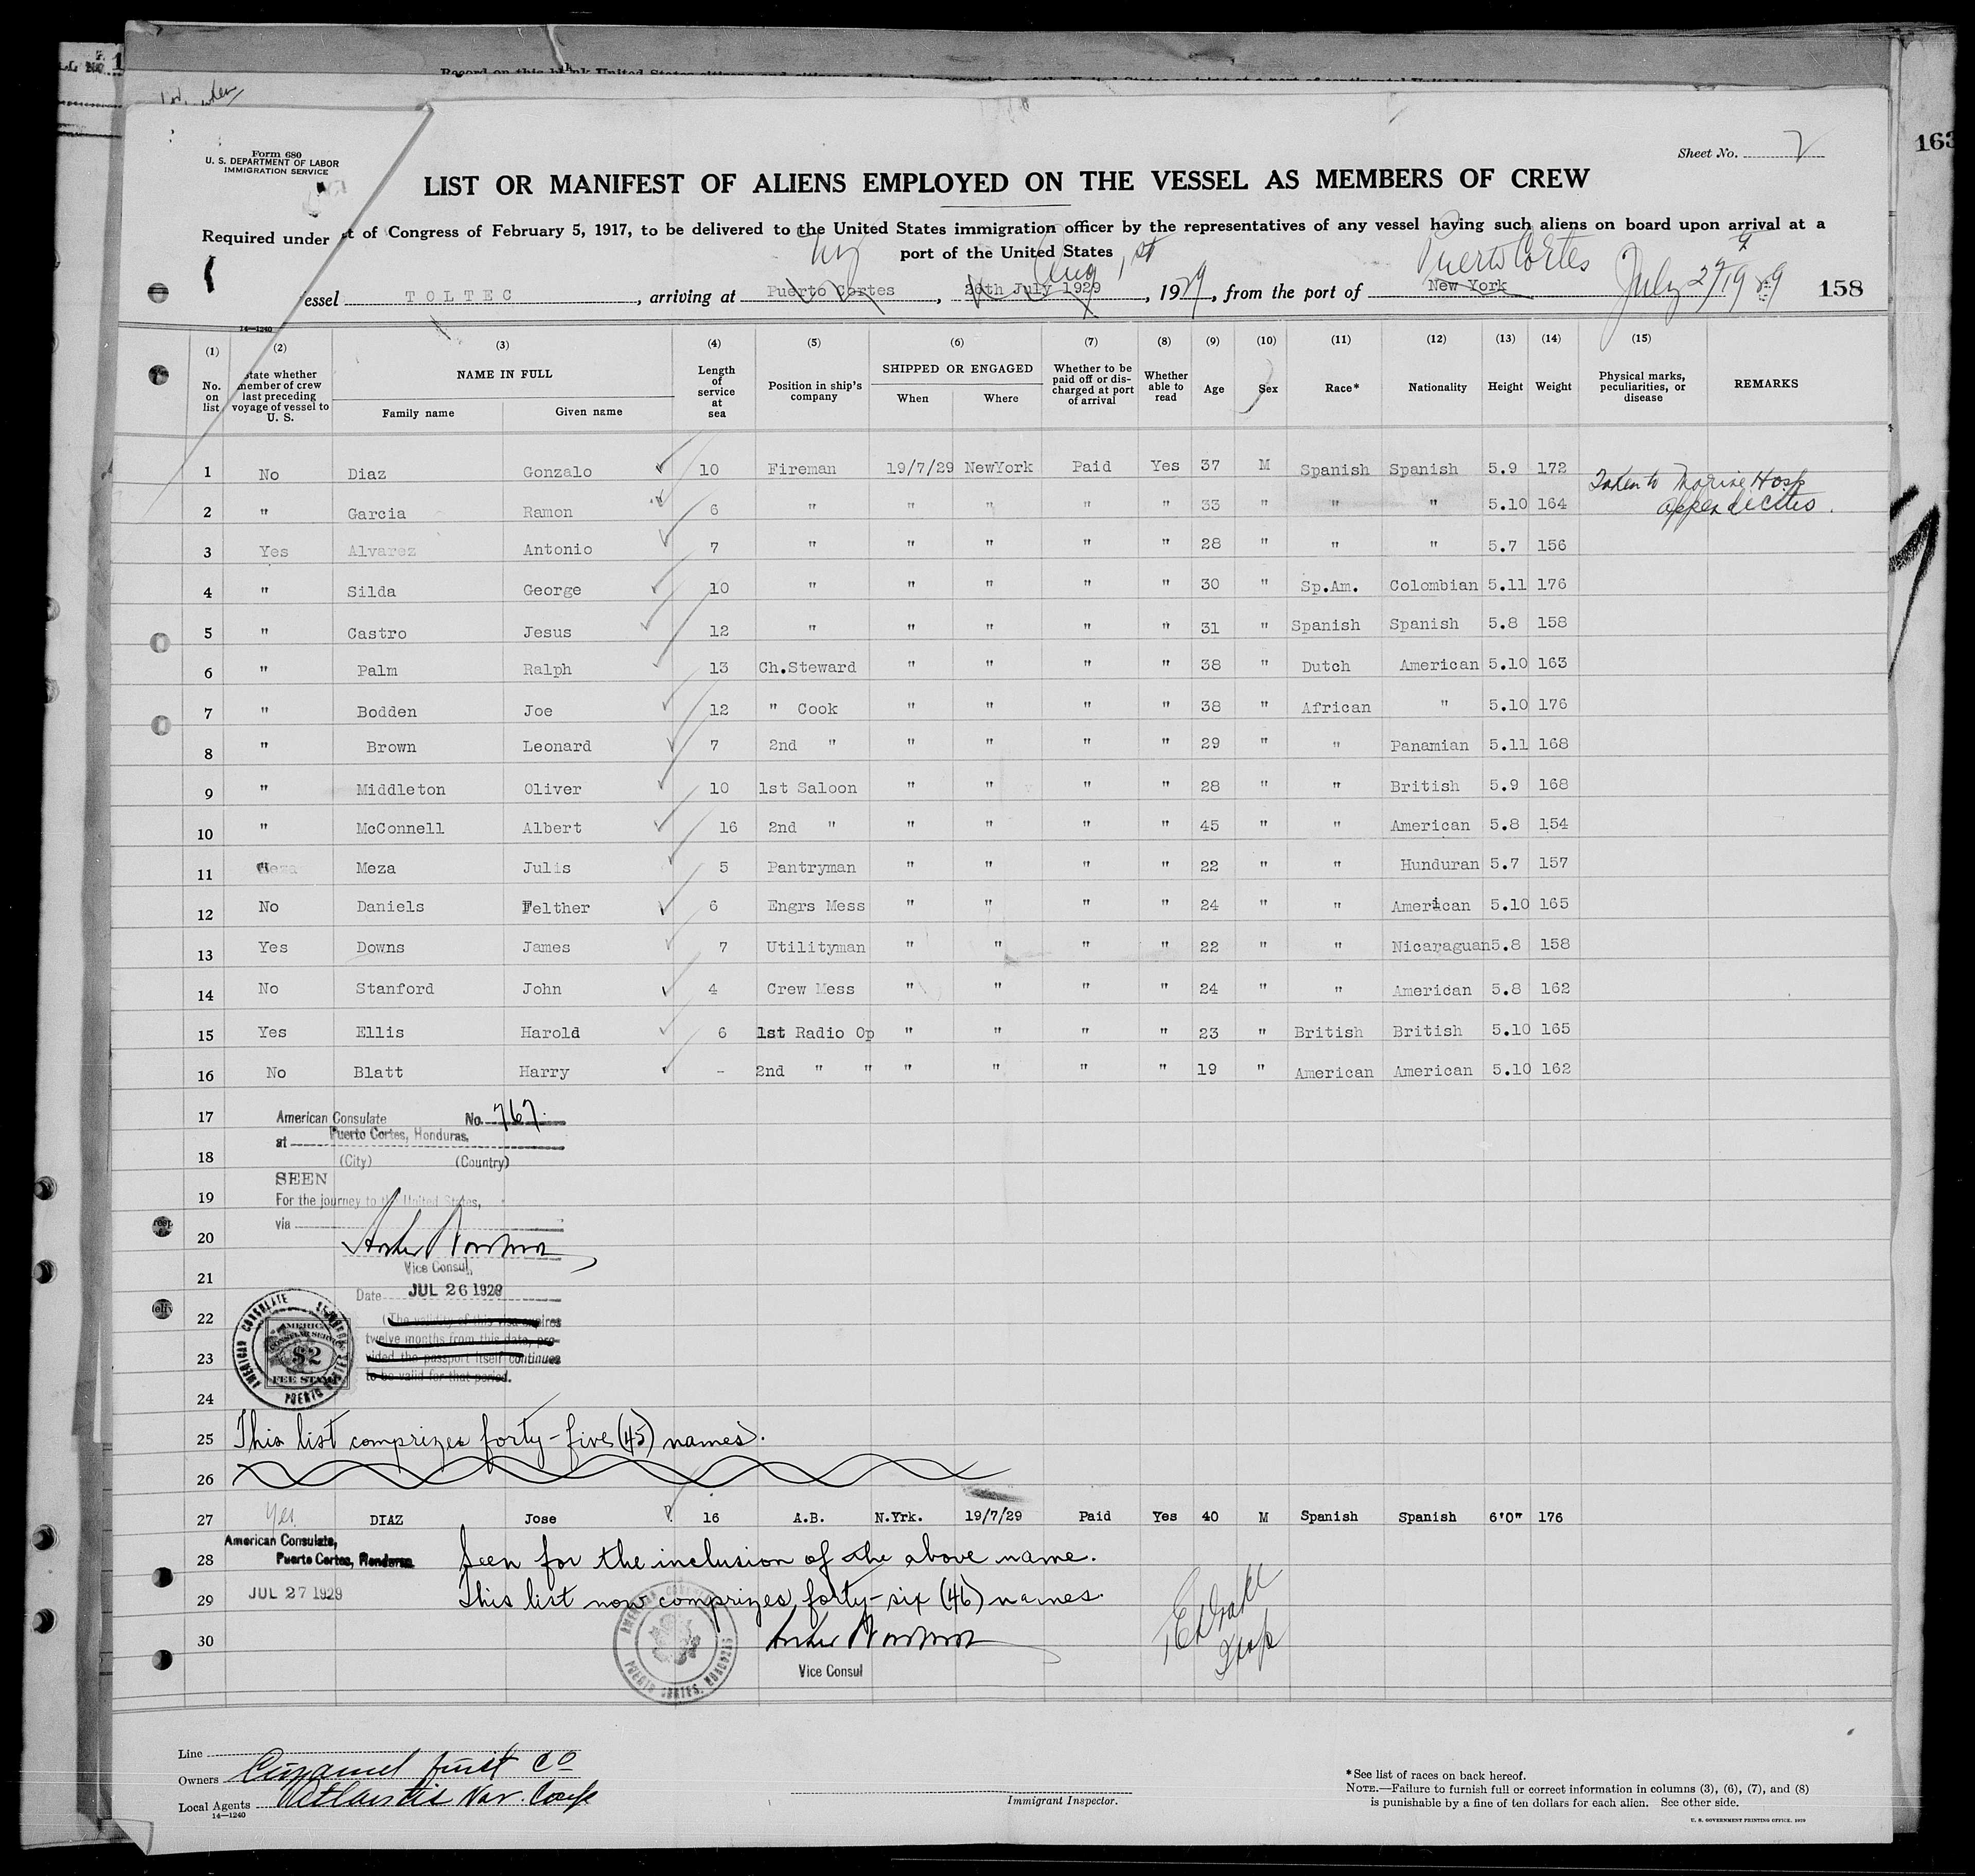 Record on this blank United States citizens
163
Form 680
U. S. DEPARTMENT OF LABOR
IMMIGRATION SERVICE
Sheet No. 2
LIST OR MANIFEST OF ALIENS EMPLOYED ON THE VESSEL AS MEMBERS OF CREW
Required under t of Congress of February 5, 1917, to be delivered to the United States immigration officer by the representatives of any vessel having such aliens on board upon arrival at a
port of the United States
NY Aug 1st Puerto Cortes July 27 1929
essel TOLTEC, arriving at Puerto Cortes, 26th July 1929, 1929, from the port of New York 158
14—1240
(1) (2) (3) (4) (5) (6) (7) (8) (9) (10) (11) (12) (13) (14) (15)
No. on list State whether member of crew last preceding voyage of vessel to U. S. NAME IN FULL Family name Given name Length of service at sea Position in ship's company SHIPPED OR ENGAGED When Where Whether to be paid off or discharged at port of arrival Whether able to read Age Sex Race* Nationality Height Weight Physical marks, peculiarities, or disease REMARKS
1 No Diaz Gonzalo 10 Fireman 19/7/29 NewYork Paid Yes 37 M Spanish Spanish 5.9 172
Taken to Marine Hosp
2 " Garcia Ramon 6 " " " " " 33 " " " 5.10 164 appendicitis.
3 Yes Alvarez Antonio 7 " " " " " 28 " " " 5.7 156
4 " Silda George 10 " " " " " 30 " Sp.Am. Colombian 5.11 176
5 " Castro Jesus 12 " " " " " 31 " Spanish Spanish 5.8 158
6 " Palm Ralph 13 Ch.Steward " " " " 38 " Dutch American 5.10 163
7 " Bodden Joe 12 " Cook " " " " 38 " African " 5.10 176
8 " Brown Leonard 7 2nd " " " " " 29 " " Panamian 5.11 168
9 " Middleton Oliver 10 1st Saloon " " " " 28 " " British 5.9 168
10 " McConnell Albert 16 2nd " " " " " 45 " " American 5.8 154
11 Meza Julis 5 Pantryman " " " " 22 " " Hunduran 5.7 157
12 No Daniels Felther 6 Engrs Mess " " " " 24 " " American 5.10 165
13 Yes Downs James 7 Utilityman " " " " 22 " " Nicaraguan 5.8 158
14 No Stanford John 4 Crew Mess " " " " 24 " " American 5.8 162
15 Yes Ellis Harold 6 1st Radio Op " " " " 23 " British British 5.10 165
16 No Blatt Harry - 2nd " " " " " " 19 " American American 5.10 162
17 American Consulate No. 767.
at Puerto Cortes, Honduras,
18 (City) (Country)
SEEN
19 For the journey to the United States,
via
20
Vice Consul,
21
Date JUL 26 1929
22 (The validity of this visa expires
twelve months from this date, pro-
23 vided the passport itself continues
to be valid for that period.
AMERICAN CONSULATE PUERTO CORTES
AMERICAN CONSULAR SERVICE $2 FEE STAMP
24
25 This list comprizes forty-five (45) names.
26
27 Yes DIAZ Jose 16 A.B. N.Yrk. 19/7/29 Paid Yes 40 M Spanish Spanish 6'0" 176
American Consulate,
28 Puerto Cortes, Honduras Seen for the inclusion of the above name.
29 JUL 27 1929 This list now comprizes forty-six (46) names.
30
AMERICAN CONSULATE PUERTO CORTES, HONDURAS
Vice Consul
Line
Owners Cuyamel Fruit Co
Local Agents Atlantis Nav. Corp
14—1240
Immigrant Inspector.
*See list of races on back hereof.
NOTE.—Failure to furnish full or correct information in columns (3), (6), (7), and (8)
is punishable by a fine of ten dollars for each alien. See other side.
U. S. GOVERNMENT PRINTING OFFICE. 1929